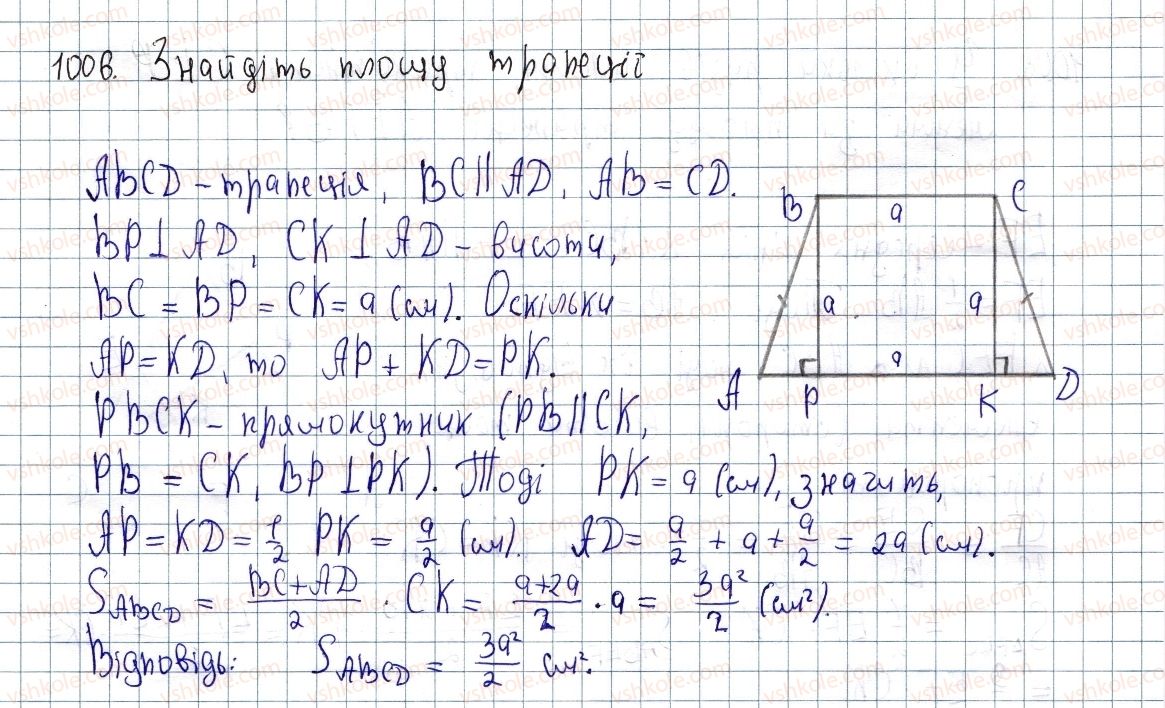 1006. Знайдіть площу трапеції
ABCD – трапеція, BC || AD, AB = CD.
BP ⊥ AD, CK ⊥ AD – висоти,
BC = BP = CK = a (см). Оскільки
AP = KD, то AP + KD = PK.
PBCK – прямокутник (PB || CK,
PB = CK, BP ⊥ PK). Тоді PK = a (см), значить,
AP = KD = 1/2 PK = a/2 (см). AD = a/2 + a + a/2 = 2a (см).
S ABCD = (BC + AD)/2 · CK = (a + 2a)/2 · a = 3a²/2 (см²).
Відповідь: S ABCD = 3a²/2 см².
B a C
a a
a
A P K D
vshkole.com